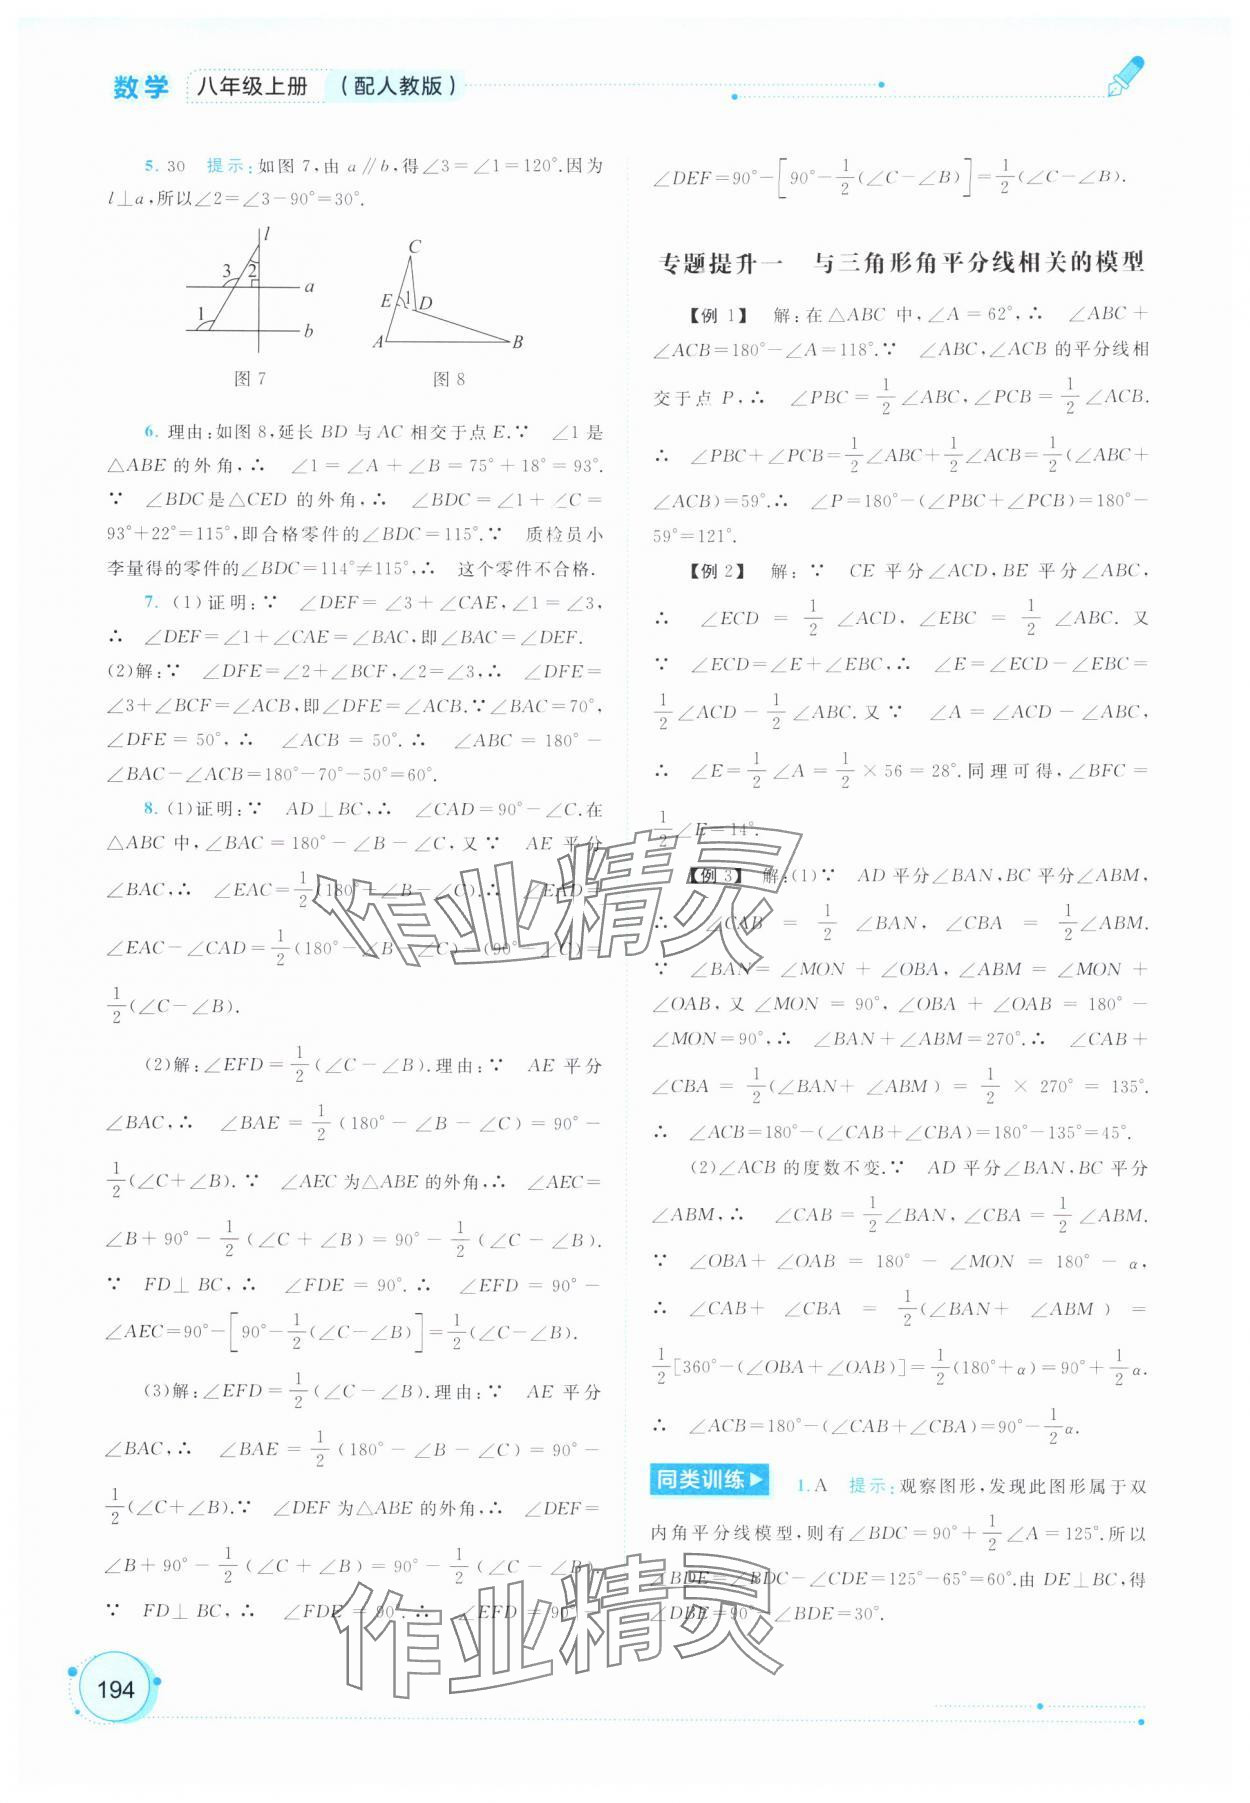 数学 八年级上册 (配人教版)
5. 30 提示:如图 7,由 a∥b,得∠3=∠1=120°.因为
l⊥a,所以∠2=∠3-90°=30°.
l
3 2
a
1
b
图 7
C
E 1 D
A B
图 8
6. 理由:如图 8,延长 BD 与 AC 相交于点 E.∵ ∠1 是
△ABE 的外角,∴ ∠1=∠A+∠B=75°+18°=93°.
∵ ∠BDC是△CED 的外角,∴ ∠BDC=∠1+∠C=
93°+22°=115°,即合格零件的∠BDC=115°.∵ 质检员小
李量得的零件的∠BDC=114°≠115°,∴ 这个零件不合格.
7. (1)证明:∵ ∠DEF=∠3+∠CAE,∠1=∠3,
∴ ∠DEF=∠1+∠CAE=∠BAC,即∠BAC=∠DEF.
(2)解:∵ ∠DFE=∠2+∠BCF,∠2=∠3,∴ ∠DFE=
∠3+∠BCF=∠ACB,即∠DFE=∠ACB.∵∠BAC=70°,
∠DFE=50°,∴ ∠ACB=50°.∴ ∠ABC=180°-
∠BAC-∠ACB=180°-70°-50°=60°.
8. (1)证明:∵ AD⊥BC,∴ ∠CAD=90°-∠C.在
△ABC 中,∠BAC=180°-∠B-∠C,又∵ AE 平分
∠BAC,∴ ∠EAC=1/2(180°-∠B-∠C).∴ ∠EAD=
∠EAC-∠CAD=1/2(180°-∠B-∠C)-(90°-∠C)=
1/2(∠C-∠B).
(2)解:∠EFD=1/2(∠C-∠B).理由:∵ AE 平分
∠BAC,∴ ∠BAE=1/2(180°-∠B-∠C)=90°-
1/2(∠C+∠B).∵ ∠AEC 为△ABE 的外角,∴ ∠AEC=
∠B+90°-1/2(∠C+∠B)=90°-1/2(∠C-∠B).
∵ FD⊥BC,∴ ∠FDE=90°.∴ ∠EFD=90°-
∠AEC=90°-[90°-1/2(∠C-∠B)]=1/2(∠C-∠B).
(3)解:∠EFD=1/2(∠C-∠B).理由:∵ AE 平分
∠BAC,∴ ∠BAE=1/2(180°-∠B-∠C)=90°-
1/2(∠C+∠B).∵ ∠DEF 为△ABE 的外角,∴ ∠DEF=
∠B+90°-1/2(∠C+∠B)=90°-1/2(∠C-∠B).
∵ FD⊥BC,∴ ∠FDE=90°.∴ ∠EFD=90°-
∠DEF=90°-[90°-1/2(∠C-∠B)]=1/2(∠C-∠B).
专题提升一 与三角形角平分线相关的模型
【例 1】 解:在△ABC 中,∠A=62°,∴ ∠ABC+
∠ACB=180°-∠A=118°.∵ ∠ABC,∠ACB 的平分线相
交于点 P,∴ ∠PBC=1/2∠ABC,∠PCB=1/2∠ACB.
∴ ∠PBC+∠PCB=1/2∠ABC+1/2∠ACB=1/2(∠ABC+
∠ACB)=59°.∴ ∠P=180°-(∠PBC+∠PCB)=180°-
59°=121°.
【例 2】 解:∵ CE 平分∠ACD,BE 平分∠ABC,
∴ ∠ECD=1/2∠ACD,∠EBC=1/2∠ABC.又
∵ ∠ECD=∠E+∠EBC,∴ ∠E=∠ECD-∠EBC=
1/2∠ACD-1/2∠ABC.又∵ ∠A=∠ACD-∠ABC,
∴ ∠E=1/2∠A=1/2×56=28°.同理可得,∠BFC=
1/2∠E=14°.
【例 3】 解:(1)∵ AD 平分∠BAN,BC 平分∠ABM,
∴ ∠CAB=1/2∠BAN,∠CBA=1/2∠ABM.
∵ ∠BAN=∠MON+∠OBA,∠ABM=∠MON+
∠OAB,又∠MON=90°,∠OBA+∠OAB=180°-
∠MON=90°,∴ ∠BAN+∠ABM=270°.∴ ∠CAB+
∠CBA=1/2(∠BAN+∠ABM)=1/2×270°=135°.
∴ ∠ACB=180°-(∠CAB+∠CBA)=180°-135°=45°.
(2)∠ACB 的度数不变.∵ AD 平分∠BAN,BC 平分
∠ABM,∴ ∠CAB=1/2∠BAN,∠CBA=1/2∠ABM.
∵ ∠OBA+∠OAB=180°-∠MON=180°-α,
∴ ∠CAB+∠CBA=1/2(∠BAN+∠ABM)=
1/2[360°-(∠OBA+∠OAB)]=1/2(180°+α)=90°+1/2α.
∴ ∠ACB=180°-(∠CAB+∠CBA)=90°-1/2α.
同类训练 1. A 提示:观察图形,发现此图形属于双
内角平分线模型,则有∠BDC=90°+1/2∠A=125°.所以
∠BDE=∠BDC-∠CDE=125°-65°=60°.由 DE⊥BC,得
∠DBE=90°-∠BDE=30°.
作业精灵
作业精灵
194